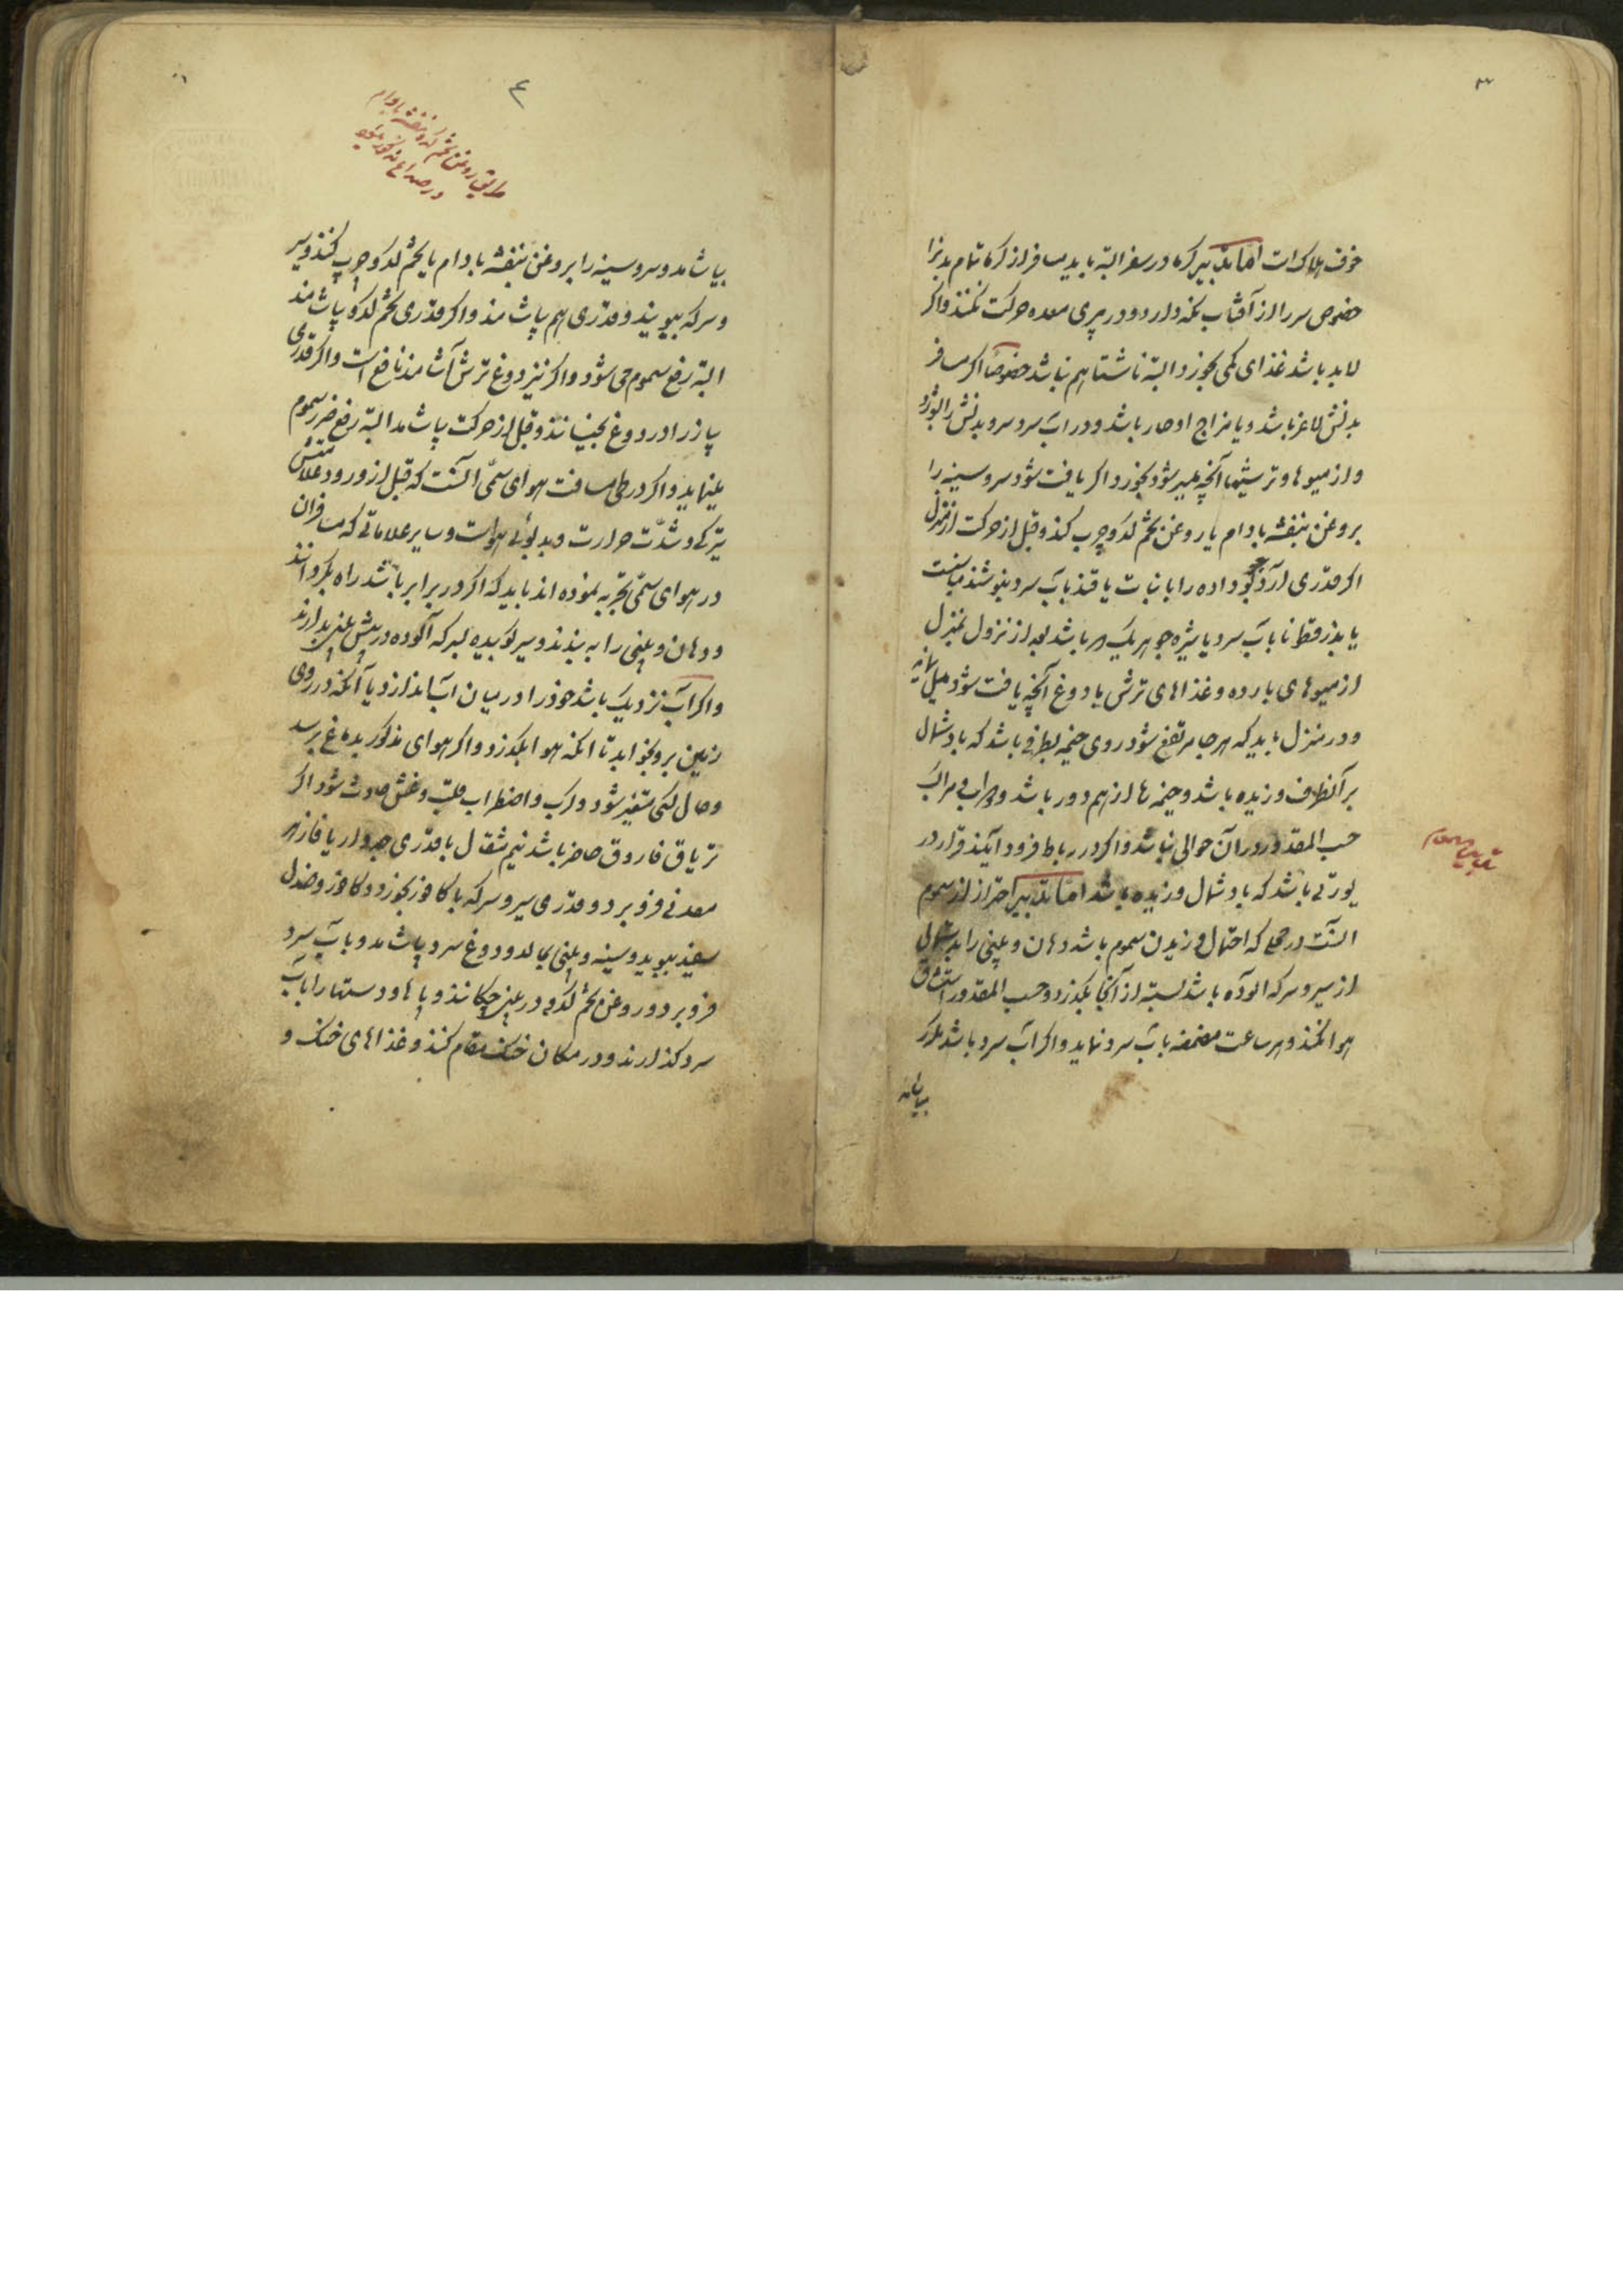 ۳
خوف هلاک است اما تدبیر کرما در سفر البته باید مسافر از کرما تمام بدن را
خصوص سر را از آفتاب نکه دارد و در پری معده حرکت نکنند و اکر
لابد باشد غذای کمی بخورد و البته ناشتا هم نباشد خصوصاً اکر مسافر
بدنش لاغر باشد و یا مزاج او حار باشد و در آب سرد سر و بدنش را بشوید
و از میوها و ترشیها آنچه میسر شود بخورد و اکر یافت شود سر و سینه را
بروغن بنفشه بادام یا روغن تخم کدو چرب کند و قبل از حرکت از منزل
اکر قدری آرد جو بو داده را با نبات یا قند بآب سرد بنوشند مناسبست
یا بذر قطونا بآب سرد یا شیره جو هر یک مر باشد بعد از نزول بمنزل
از میوهای بارده و غذاهای ترش یا دوغ آنچه یافت شود میل نمایند
و در منزل باید که هر جا مرتفع شود روی خیمه بطرفی باشد که باد شمال
بر آنطرف وزیده باشد و خیمه ها از هم دور باشد و دواب و مراکب
حسب المقدور در آن حوالی نباشد و اکر در رباط فرود آیند قرار در
یورتی باشد که باد شمال وزیده باشد اما تدبیر احتراز از سموم
آنست در محلی که احتمال وزیدن سموم باشد دهان و بینی را بدستمالی
از سیر و سرکه آلوده باشد بسته از آنجا بکذرد و حسب المقدور استنشاق
هوا نکنند و هر ساعت مضمضه بآب سرد نماید و اکر آب سرد باشد مکرر
تدبیر سموم
بیاشامد
۴
طریق روغن تخم کدو و بنفشه بادام
در صداع مذکور میشود
بیاشامد و سر و سینه را بروغن بنفشه بادام یا تخم کدو چرب کنند و سیر
و سرکه ببویند و قدری هم بیاشامند و اکر قدری تخم کدو بیاشامند
البته رفع سموم می شود و اکر نیز دوغ ترش آشامند نافع است و اکر قدری
پیاز را در دوغ بخیسانند و قبل از حرکت بیاشامد البته رفع ضرر سموم
مینماید و اکر در طی مسافت هوای سمّی آنست که قبل از ورود علامتش
تیرکی و شدّت حرارت و بدبوئی هواست و سایر علاماتی که مسافران
در هوای سمّی تجربه نموده اند باید که اکر در برابر باشد راه بکردانند
و دهان و بینی را به بندند و سیر کوبیده بسرکه آلوده در پیش بینی بدارند
و اکر آب نزدیک باشد خود را در میان آب اندازد یا آنکه در روی
زمین برو بخوابد تا آنکه هوا بکذرد و اکر هوای مذکور بدماغ برسد
و حال کسی متغیر شود و کرب و اضطراب قلب و غش حادث شود اکر
تریاق فاروق حاضر باشد نیم مثقال با قدری جدوار یا فازهر
معدنی فرو برد و قدری سیر و سرکه با کافور بخورد و کافور و صندل
سفید ببوید و سینه و بینی بمالد و دوغ سرد بیاشامد و بآب سرد
فرو برد و روغن تخم کدو در بینی چکانند و پاها و دستها را بآب
سرد کذارند و در مکان خنک مقام کنند و غذاهای خنک و